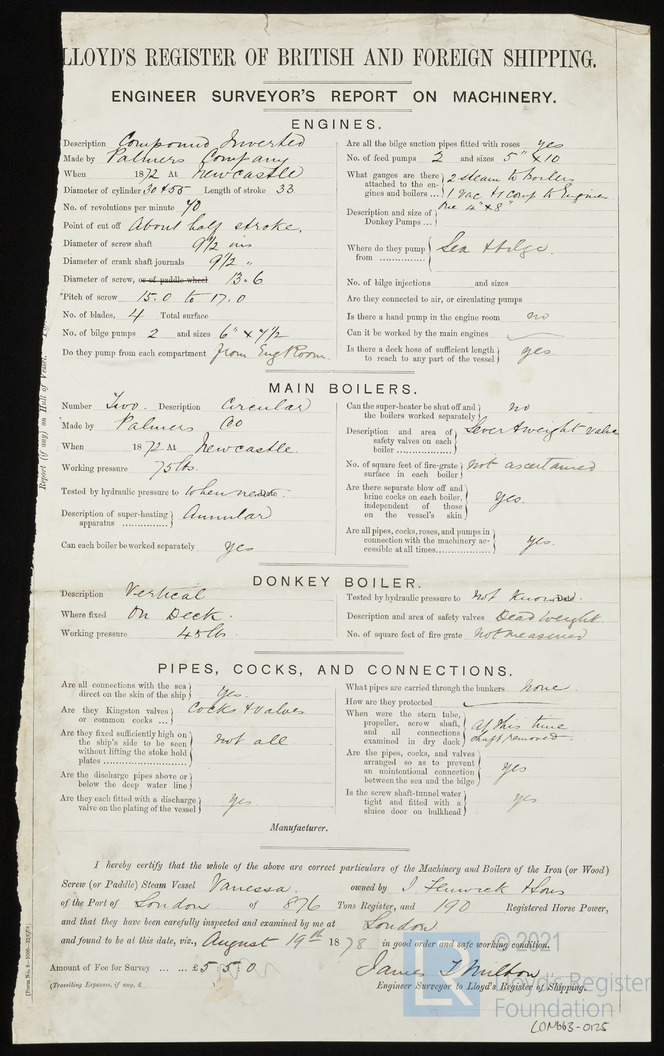 LLOYD'S REGISTER OF BRITISH AND FOREIGN SHIPPING.
ENGINEER SURVEYOR'S REPORT ON MACHINERY.
ENGINES.
Description Compound Inverted
Made by Palmers Company
When 1872 At Newcastle
Diameter of cylinder 30 & 55 Length of stroke 33
No. of revolutions per minute 70
Point of cut off About half stroke.
Diameter of screw shaft 9½ ins
Diameter of crank shaft journals 9½ "
Diameter of screw, or of paddle wheel 13.6
Pitch of screw 15.0 to 17.0
No. of blades, 4 Total surface
No. of bilge pumps 2 and sizes 6" x 7½
Do they pump from each compartment from Eng Room.
Are all the bilge suction pipes fitted with roses yes
No. of feed pumps 2 and sizes 5" x 10
What gauges are there attached to the engines and boilers ... 2 steam to boilers
1 vac & 1 comp to Engines
Description and size of Donkey Pumps ... One 4" x 8"
Where do they pump from Sea & bilge.
No. of bilge injections and sizes
Are they connected to air, or circulating pumps
Is there a hand pump in the engine room no
Can it be worked by the main engines
Is there a deck hose of sufficient length to reach to any part of the vessel yes
Report (if any) on Hull of Vessel.
MAIN BOILERS.
Number Two. Description Circular
Made by Palmers Co
When 1872 At Newcastle.
Working pressure 75 lbs.
Tested by hydraulic pressure to when new. Date
Description of super-heating apparatus Annular
Can each boiler be worked separately yes
Can the super-heater be shut off and the boilers worked separately no
Description and area of safety valves on each boiler Lever & weight valve
No. of square feet of fire-grate surface in each boiler not ascertained
Are there separate blow off and brine cocks on each boiler, independent of those on the vessel's skin yes.
Are all pipes, cocks, roses, and pumps in connection with the machinery accessible at all times yes.
DONKEY BOILER.
Description Vertical
Where fixed On Deck.
Working pressure 45 lb
Tested by hydraulic pressure to not known. Date
Description and area of safety valves Dead weight.
No. of square feet of fire grate not measured
PIPES, COCKS, AND CONNECTIONS.
Are all connections with the sea direct on the skin of the ship yes.
Are they Kingston valves or common cocks ... Cocks & valves
Are they fixed sufficiently high on the ship's side to be seen without lifting the stoke hold plates not all
Are the discharge pipes above or below the deep water line
Are they each fitted with a discharge valve on the plating of the vessel yes
What pipes are carried through the bunkers none.
How are they protected
When were the stern tube, propeller, screw shaft, and all connections examined in dry dock At this time
shaft removed.
Are the pipes, cocks, and valves arranged so as to prevent an unintentional connection between the sea and the bilge yes
Is the screw shaft-tunnel water tight and fitted with a sluice door on bulkhead yes
Manufacturer.
I hereby certify that the whole of the above are correct particulars of the Machinery and Boilers of the Iron (or Wood)
Screw (or Paddle) Steam Vessel Vanessa. owned by J Fenwick & Sons
of the Port of London of 876 Tons Register, and 190 Registered Horse Power,
and that they have been carefully inspected and examined by me at London
and found to be at this date, viz., August 19th 1878 in good order and safe working condition.
Amount of Fee for Survey ... ... £5:5:0
(Travelling Expenses, if any, £
James T Milton
Engineer Surveyor to Lloyd's Register of Shipping.
© 2021
LR
Lloyd's Register
Foundation
LON663-0125